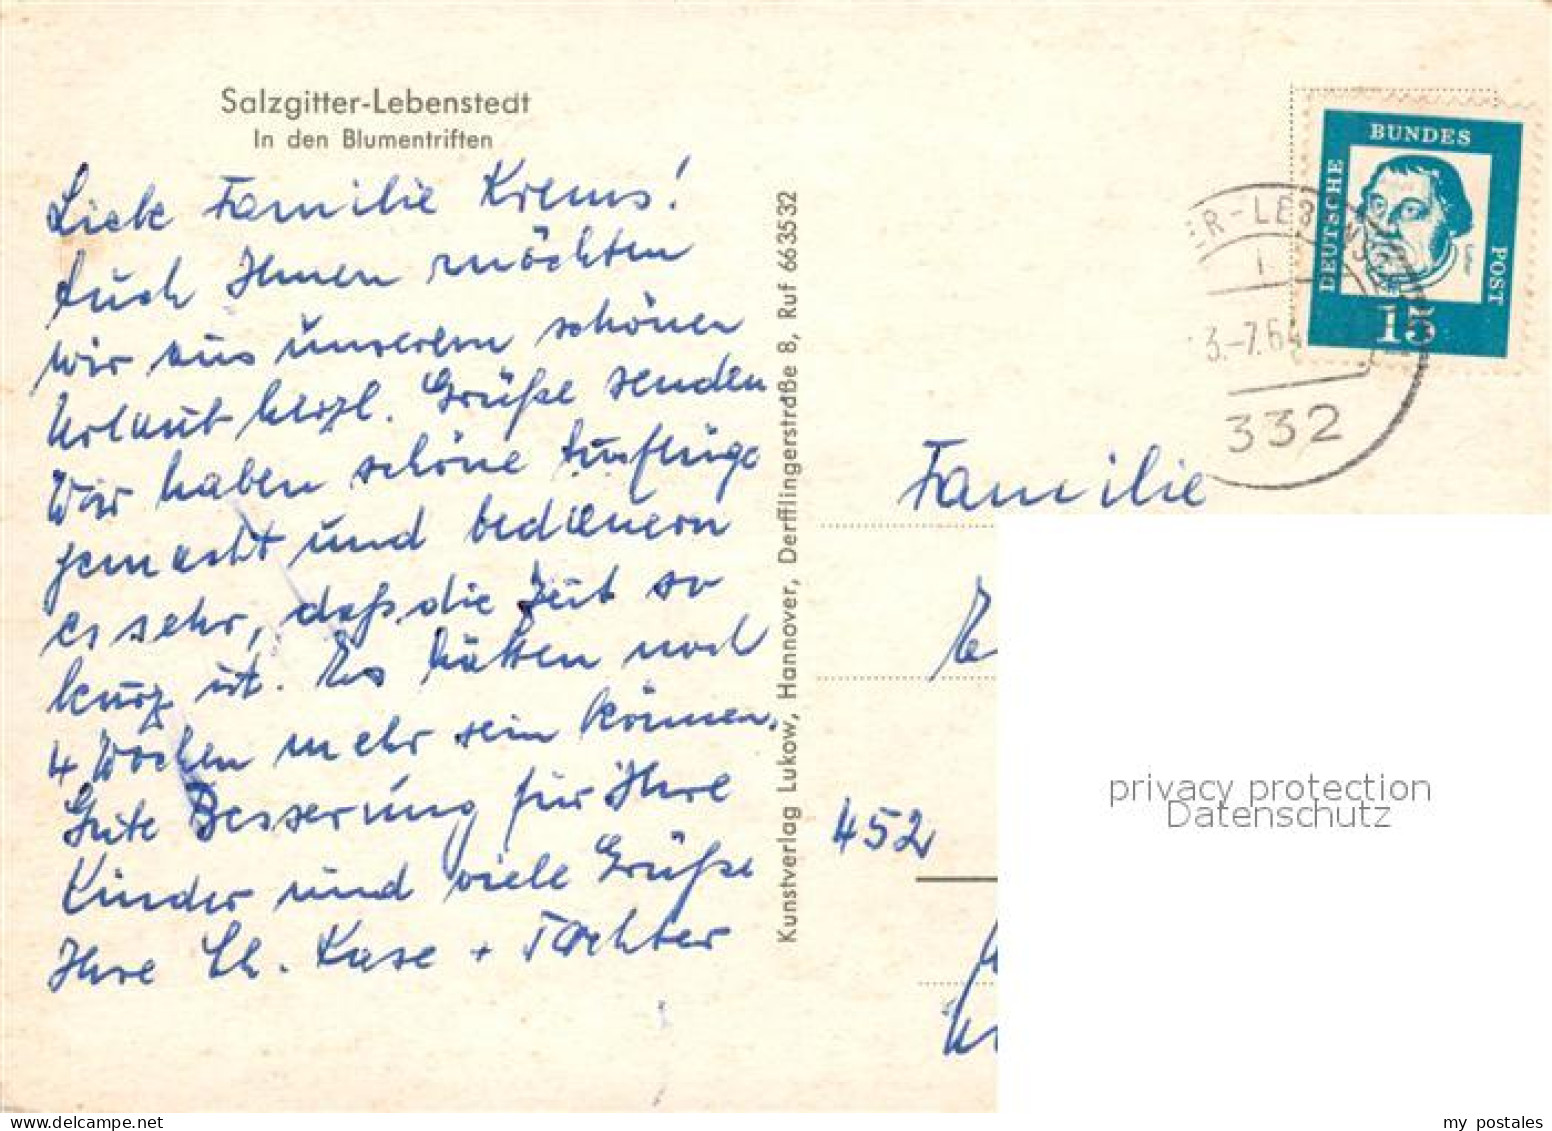 Salzgitter-Lebenstedt
In den Blumentriften
Liebe Familie Krems!
Auch Ihnen möchten
wir aus unserem schönen
Urlaub herzl. Grüße senden
Wir haben schöne Ausflüge
gemacht und bedauern
es sehr, daß die Zeit so
kurz ist. Es hätten noch
4 Wochen mehr sein können.
Gute Besserung für Ihre
Kinder und viele Grüße
Ihre Ch. Kase + Tochter
Kunstverlag Lukow, Hannover, Derfflingerstraße 8, Ruf 663532
DEUTSCHE
BUNDES
POST
15
ER-LEBENST
3.-7.64
332
Familie
452
privacy protection
Datenschutz
my postales